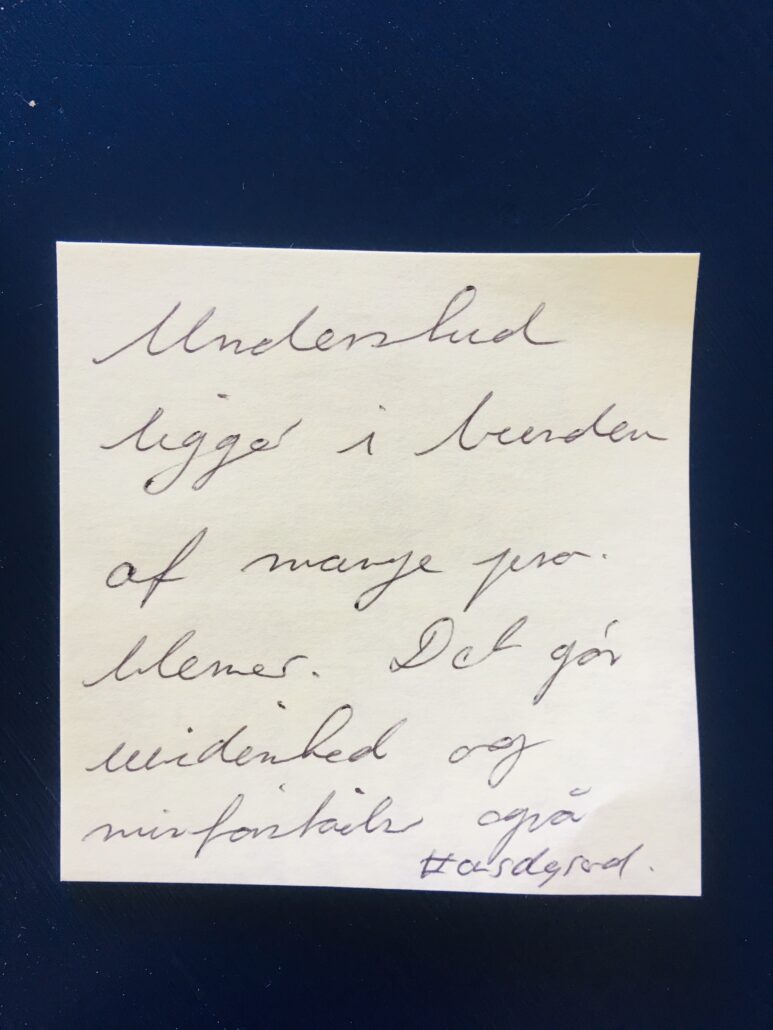 Underskud
ligger i bunden
af mange pro-
blemer. Det gør
uvidenhed og
misforståelse også